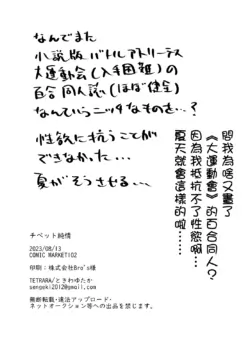 なんでまた
小説版バトルアスリーテス
大運動会(入手困難)の
百合同人誌(ほぼ健全)
なんていうニッチなものを…?
性欲に抗うことが
できなかった…
夏がそうさせる…
問我為啥又畫了
《大運動會》的百合同人?
因為我抵抗不了性慾啊……
夏天就會這樣的啦……
チベット純情
2023/08/13
COMIC MARKET102
印刷:株式会社Bro's様
TETRARA/ときわゆたか
sengeki2012@gmail.com
無断転載・違法アップロード・
ネットオークション等への出品を禁じます。